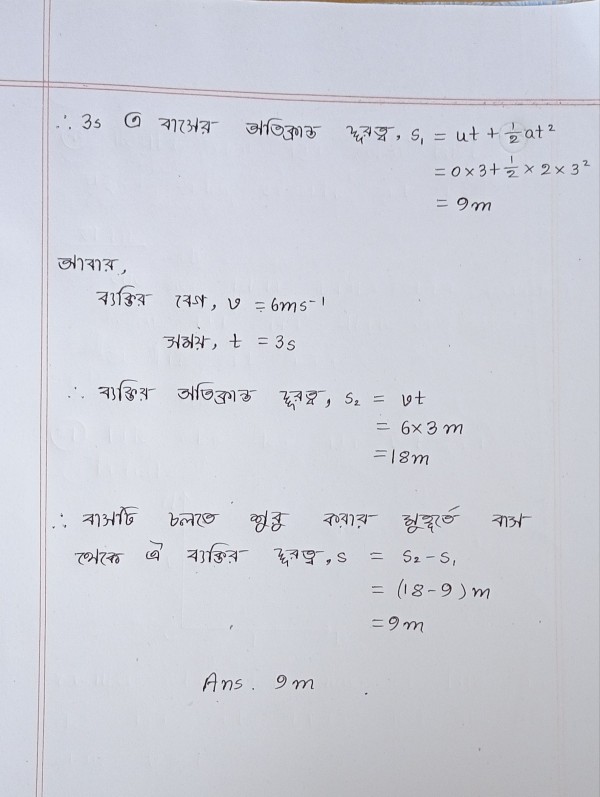 ∴ 3s এ বাসের অতিক্রান্ত দূরত্ব, s₁ = ut + ½at²
= 0×3+½×2×3²
= 9m
আবার,
ব্যক্তির বেগ, v = 6ms⁻¹
সময়, t = 3s
∴ ব্যক্তির অতিক্রান্ত দূরত্ব, s₂ = vt
= 6×3 m
=18m
∴ বাসটি চলতে শুরু করার মুহূর্তে বাস
থেকে ঐ ব্যক্তির দূরত্ব, s = s₂-s₁
= (18-9)m
=9m
Ans. 9m